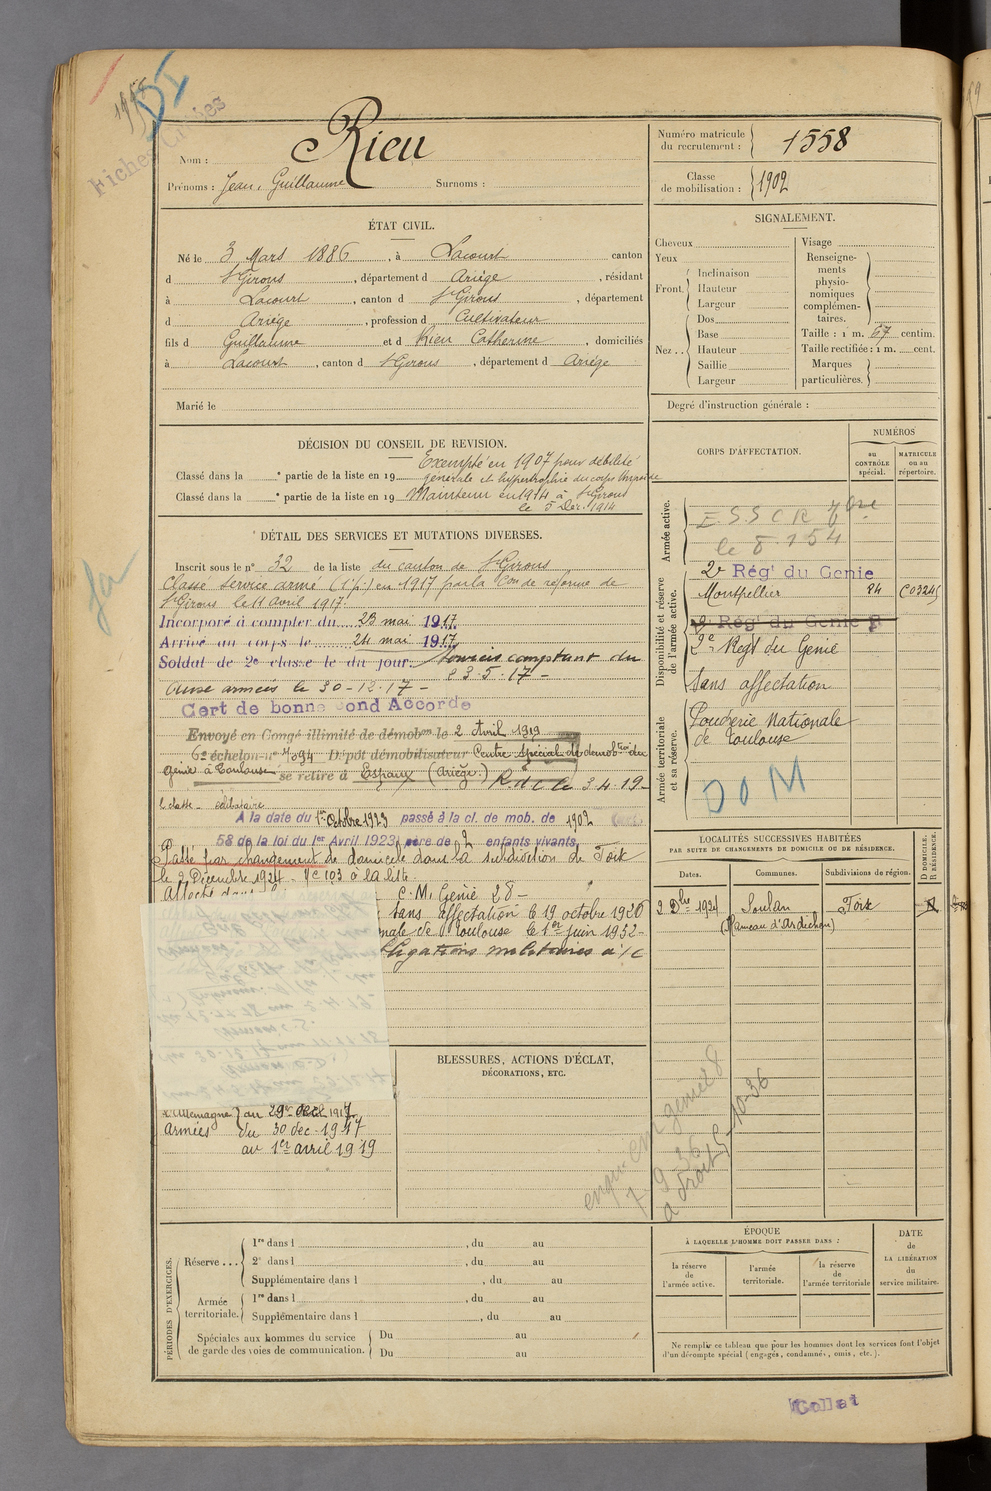 1918
DI
Fiches Créées
Nom : Rieu
Prénoms : Jean, Guillaume Surnoms :
Numéro matricule du recrutement : 1558
Classe de mobilisation : 1902
ÉTAT CIVIL.
Né le 3 Mars 1886, à Lacourt canton
d St Girons, département d Ariège, résidant
à Lacourt, canton d St Girons, département
d Ariège, profession d Cultivateur
fils d Guillaume et d Rieu Catherine, domiciliés
à Lacourt, canton d St Girons, département d Ariège
Marié le
SIGNALEMENT.
Cheveux
Yeux
Front. Inclinaison
Hauteur
Largeur
Nez .. Dos
Base
Hauteur
Saillie
Largeur
Visage
Renseignements physionomiques complémentaires.
Taille : 1 m. 67 centim.
Taille rectifiée : 1 m. cent.
Marques particulières.
Degré d'instruction générale :
DÉCISION DU CONSEIL DE REVISION.
Exempté en 1907 pour débilité
Classé dans la e partie de la liste en 19 générale et hypertrophie du corps thyroïde
Classé dans la e partie de la liste en 19 Maintenu en 1914 à St Girons
le 5 Déc. 1914
DÉTAIL DES SERVICES ET MUTATIONS DIVERSES.
Inscrit sous le n° 32 de la liste du canton de St Girons
Classé service armé (1e p.) en 1917 par la Con de réforme de
St Girons le 11 avril 1917.
Incorporé à compter du 23 mai 1917.
Arrivé au corps le 24 mai 1917.
Soldat de 2e classe le du jour. Services comptant du
23.5.17 -
Aux armées le 30-12-17 -
Cert de bonne cond Accordé
Envoyé en Congé illimité de démobon le 2 Avril 1919
6e échelon-n° 7094 Dépôt démobilisateur Centre spécial de démobtion du
génie à Toulouse se retire à Espaux (Ariège.) R.d.C. le 3.4.19-
célibataire
A la date du 1er Octobre 1923 passé à la cl. de mob. de 1902
58 de la loi du 1er Avril 1923, père de 2 enfants vivants
Passé par changement de domicile dans la subdivision de Foix
le 2 Décembre 1924 - No 103 à la liste
C. M. Génie 28-
sans affectation le 19 octobre 1926
nale de Toulouse le 1er juin 1932-
ligations militaires
CORPS D'AFFECTATION.
NUMÉROS
au CONTRÔLE spécial.
MATRICULE ou au répertoire.
Armée active.
Disponibilité et réserve de l'armée active.
Armée territoriale et sa réserve.
2e Régt du Genie
Montpellier
2e Régt du Génie
Sans affectation
Poudrerie Nationale
de Toulouse
DOM
LOCALITÉS SUCCESSIVES HABITÉES
PAR SUITE DE CHANGEMENTS DE DOMICILE OU DE RÉSIDENCE.
Dates.
Communes.
Subdivisions de région.
D DOMICILE.
R RÉSIDENCE.
2 Dbre 1924 Soulan Foix D
(Hameau d'Ardichen)
BLESSURES, ACTIONS D'ÉCLAT,
DÉCORATIONS, ETC.
d'Allemagne au 29 déc. 1917
Armées du 30 dec. 1917
au 1er avril 1919
PÉRIODES D'EXERCICES.
Réserve ... 1re dans l , du au
2e dans l , du au
Supplémentaire dans l , du au
Armée territoriale. 1re dans l , du au
Supplémentaire dans l , du au
Spéciales aux hommes du service
de garde des voies de communication.
Du au
Du au
ÉPOQUE
À LAQUELLE L'HOMME DOIT PASSER DANS :
la réserve de l'armée active.
l'armée territoriale.
la réserve de l'armée territoriale
DATE de LA LIBÉRATION du service militaire.
Ne remplir ce tableau que pour les hommes dont les services font l'objet
d'un décompte spécial (engagés, condamnés, omis, etc.).
Collat